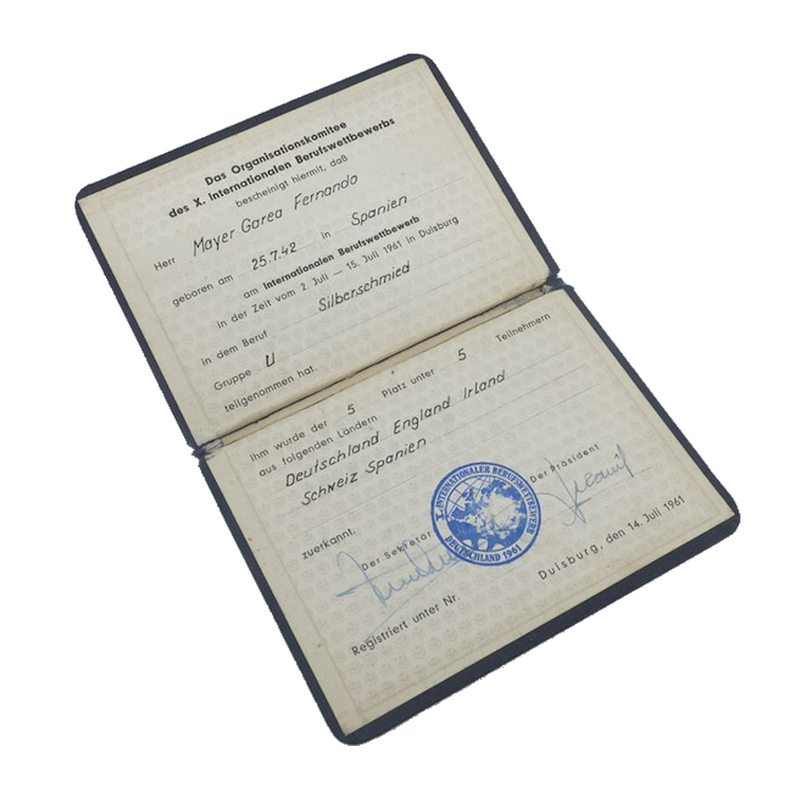 Das Organisationskomitee
des X. Internationalen Berufswettbewerbs
bescheinigt hiermit, daß
Herr Mayer Garea Fernando
geboren am 25.7.42 in Spanien
am Internationalen Berufswettbewerb
in der Zeit vom 2. Juli — 15. Juli 1961 in Duisburg
in dem Beruf Silberschmied
Gruppe U
teilgenommen hat.
Ihm wurde der 5 Platz unter 5 Teilnehmern
aus folgenden Ländern
Deutschland England Irland
Schweiz Spanien
zuerkannt.
Der Sekretär Der Präsident
X. INTERNATIONALER BERUFSWETTBEWERB
DEUTSCHLAND 1961
Duisburg, den 14. Juli 1961
Registriert unter Nr.